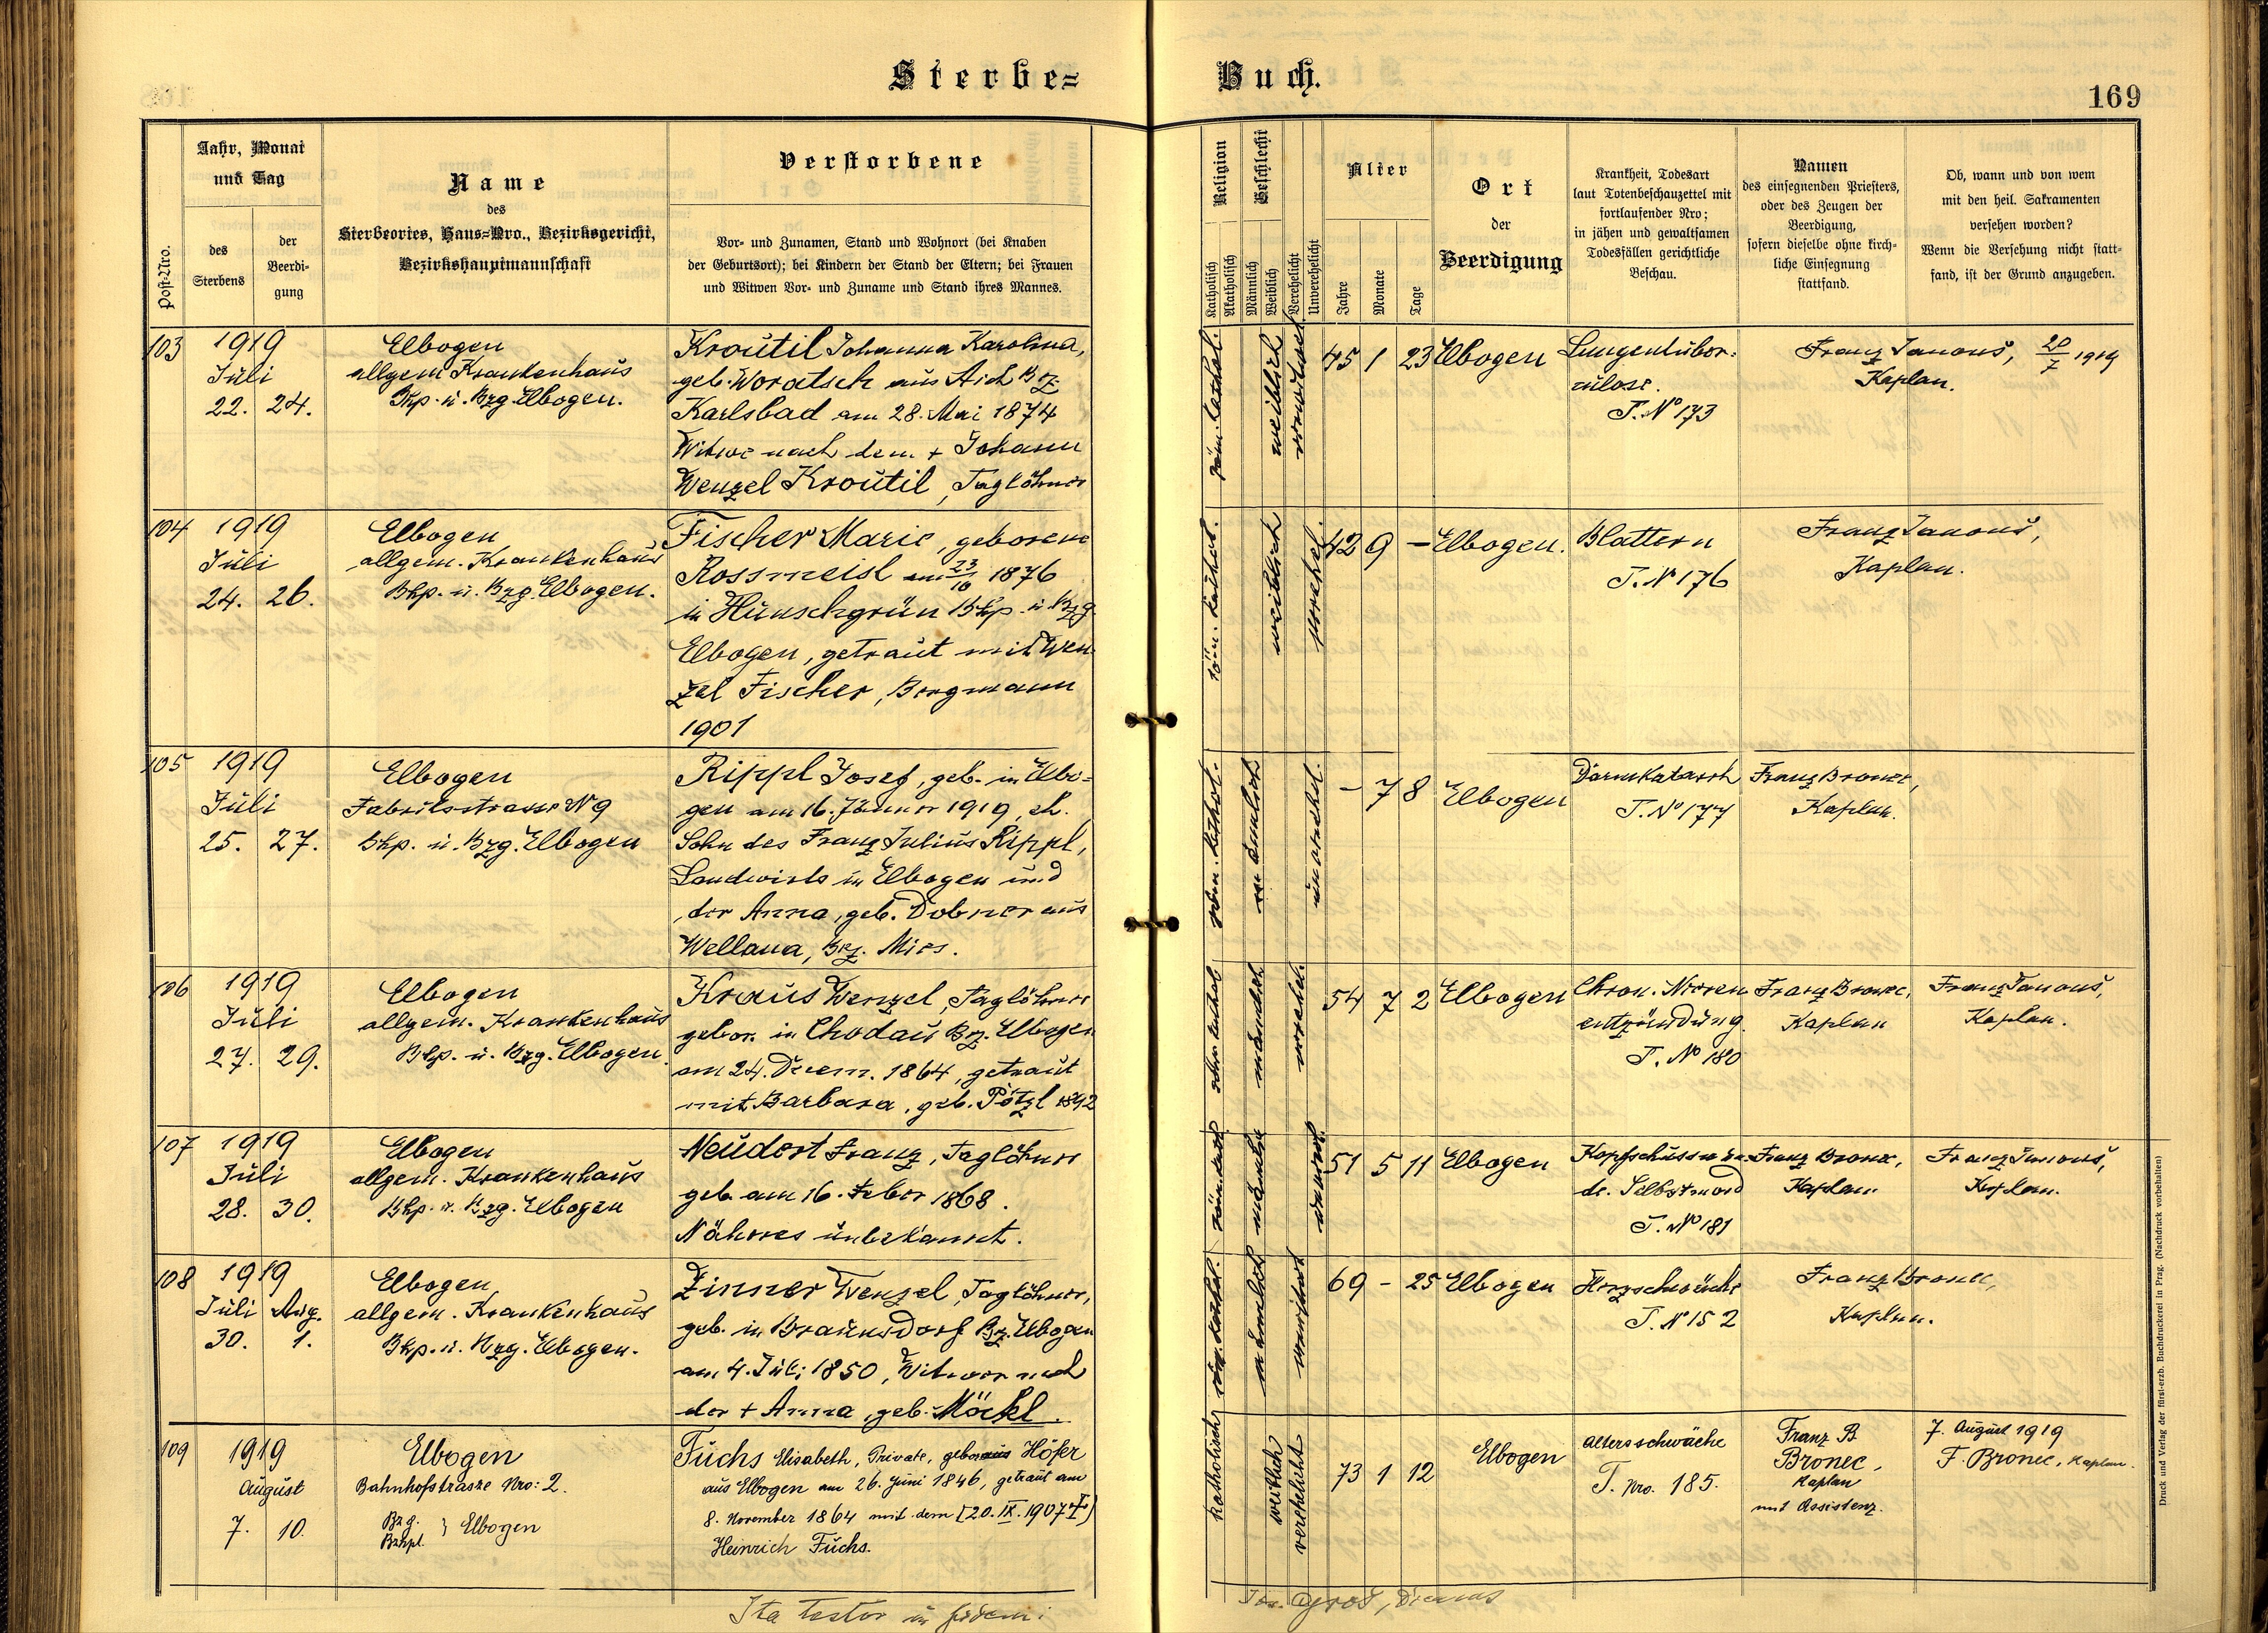 Sterbe-
Buch.
169
Post-Nro.
Jahr, Monat
und Tag
des
Sterbens
der
Beerdi-
gung
Name
des
Sterbeortes, Haus-Nro., Bezirksgericht,
Bezirkshauptmannschaft
Verstorbene
Vor- und Zunamen, Stand und Wohnort (bei Knaben
der Geburtsort); bei Kindern der Stand der Eltern; bei Frauen
und Witwen Vor- und Zuname und Stand ihres Mannes.
Religion
Katholisch
Akatholisch
Geschlecht
Männlich
Weiblich
Verehelicht
Unverehelicht
Alter
Jahre
Monate
Tage
Ort
der
Beerdigung
Krankheit, Todesart
laut Totenbeschauzettel mit
fortlaufender Nro;
in jähen und gewaltsamen
Todesfällen gerichtliche
Beschau.
Namen
des einsegnenden Priesters,
oder des Zeugen der
Beerdigung,
sofern dieselbe ohne kirch-
liche Einsegnung
stattfand.
Ob, wann und von wem
mit den heil. Sakramenten
versehen worden?
Wenn die Versehung nicht statt-
fand, ist der Grund anzugeben.
103
1919
Juli
22. 24.
Elbogen
allgem Krankenhaus
Bhp. u. Bzg. Elbogen.
Kroutil Johanna Karolina,
geb. Woratsch aus Aich Bz.
Karlsbad am 28. Mai 1874
Witwe nach dem + Johann
Wenzel Kroutil, Taglöhner
röm. kathol.
weiblich
verwitwet
45 1 23
Elbogen
Lungentuber:
culose.
T. No 173
Franz Janouš, 20/7 1919
Kaplan.
104
1919
Juli
24. 26.
Elbogen
allgem. Krankenhaus
Bhp. u. Bzg. Elbogen.
Fischer Marie, geborene
Rossmeisl am 23/10 1876
in Hünschgrün Bhp. u. Bzg.
Elbogen, getraut mit Wen
zel Fischer, Bergmann
1901
röm. kathol.
weiblich
verehel.
42 9 –
Elbogen.
Blattern
T. N 176
Franz Janouš,
Kaplan.
105
1919
Juli
25. 27.
Elbogen
Fabriksstrasse N 9
Bhp. u. Bzg. Elbogen
Rippl Josef, geb. in Elbo=
gen am 16. Jänner 1919, eh.
Sohn des Franz Julius Rippl,
Landwirts in Elbogen und
der Anna, geb. Dobner aus
Wellana, Bez. Mies.
röm. kathol.
männlich
unverehel.
– 7 8
Elbogen
Darmkatarrh
T. No 177
Franz Bronec,
Kaplan.
106
1919
Juli
27. 29.
Elbogen
allgem. Krankenhaus
Bhp. u. Bzg. Elbogen.
Kraus Wenzel, Taglöhner
gebor. in Chodau Bz. Elbogen
am 24. Decem. 1864, getraut
mit Barbara, geb. Pötzl 1892
röm. kathol
männlich
verehel.
54 7 2
Elbogen
Chron. Nieren
entzündung.
T. No 180
Franz Bronec,
Kaplan
Franz Janouš,
Kaplan.
107
1919
Juli
28. 30.
Elbogen
allgem. Krankenhaus
Bhp. u. Bzg. Elbogen
Neudert Franz, Taglöhner
geb. am 16. Feber 1868.
Näheres unbekannt.
röm. kath.
männlich
51 5 11
Elbogen
Kopfschusswun
de. Selbstmord
T. No 181
Franz Bronec,
Kaplan
Franz Janouš,
Kaplan.
108
1919
Juli Aug.
30. 1.
Elbogen
allgem. Krankenhaus
Bhp. u. Bzg. Elbogen.
Zinner Wenzel, Taglöhner,
geb. in Braunsdorf Bz. Elbogen
am 4. Juli 1850, Witwer nach
der + Anna, geb. Möckl.
röm. kathol.
männlich
verwitwet
69 – 25
Elbogen
Herzschwäche
T. N 152
Franz Bronec,
Kaplan.
109
1919
August
7. 10.
Elbogen
Bahnhofstrasze Nro: 2.
Bzg.
Bzhpl. } Elbogen
Fuchs Elisabeth, Private, geboraus Höfer
aus Elbogen am 26. Juni 1846, getraut am
8. November 1864 mit dem [20. IX. 1907 +]
Heinrich Fuchs.
katholisch
weiblich
verehelicht
73 1 12
Elbogen
Altersschwäche
T. Nro. 185.
Franz B
Bronec,
Kaplan
mit Assistenz.
7. August 1919
F. Bronec, Kaplan.
Ita testor in fidem:
Druck und Verlag der fürst-erzb. Buchdruckerei in Prag. (Nachdruck vorbehalten)